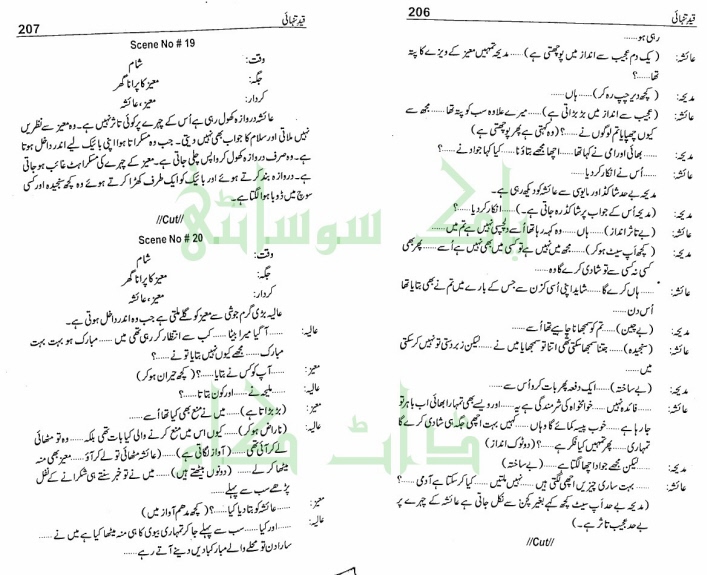 206
قید تنہائی
رہی ہو......
عائشہ: (یک دم عجیب سے انداز میں پوچھتی ہے)...... مدیحہ تمہیں معیز کے ویزے کا پتہ
تھا......؟
مدیحہ: (کچھ دیر چپ رہ کر)...... ہاں......
عائشہ: (عجیب سے انداز میں بڑبڑاتی ہے)...... میرے علاوہ سب کو پتہ تھا...... مجھ سے
کیوں چھپایا تم لوگوں نے......؟ (وہ کہتی ہے پھر پوچھتی ہے)
مدیحہ: ...... بھائی اور امی نے کہا تھا...... اچھا مجھے بتاؤ نا...... کیا کہا جواد نے......؟
عائشہ: ...... اُس نے انکار کر دیا......
مدیحہ بے حد شاکڈ اور مایوسی سے عائشہ کو دیکھ رہی ہے۔
مدیحہ: (مدیحہ اُس کے جواب پر شاکڈ رہ جاتی ہے)...... انکار کر دیا......؟
عائشہ: (بے تاثر انداز)...... ہاں...... وہ کہہ رہا تھا اُسے دلچسپی نہیں ہے تم میں......
مدیحہ: (کچھ اَپ سیٹ ہو کر)...... مجھ میں نہیں ہے تو کسی میں بھی نہیں ہے اُسے...... پھر بھی
کسی نہ کسی سے تو شادی کرے گا وہ......
عائشہ: ...... ہاں کرے گا...... شاید اپنی اُسی کزن سے جس کے بارے میں تم نے بھی بتایا تھا
اُس دن......
مدیحہ: (بے چین)...... تم کو سمجھانا چاہیے تھا اُسے......
عائشہ: (سنجیدہ)...... جتنا سمجھا سکتی تھی اتنا تو سمجھایا میں نے...... لیکن زبردستی تو نہیں کر سکتی
میں......
مدیحہ: (بے ساختہ)...... ایک دفعہ پھر بات کرو اُس سے......
عائشہ: ...... فائدہ نہیں...... خوامخواہ کی شرمندگی ہے یہ...... اور ویسے بھی تمہارا بھائی اب باہر تو
جا رہا ہے...... خوب پیسہ کمائے گا وہاں...... کہیں بہت اچھی جگہ ہی شادی کرے گا
تمہاری...... پھر تمہیں کیا فکر ہے......؟ (دوٹوک انداز)
مدیحہ: ...... لیکن مجھے جواد اچھا لگتا ہے...... (بے ساختہ)
عائشہ: ...... بہت ساری چیزیں اچھی لگتی ہیں...... نہیں ملتیں...... کیا کر سکتا ہے آدمی......؟
(مدیحہ بے حد اَپ سیٹ کچھ کہے بغیر کچن سے نکل جاتی ہے عائشہ کے چہرے پر
بے حد عجیب تاثر ہے۔)
//Cut//
207
قید تنہائی
Scene No # 19
وقت: شام
جگہ: معیز کا پرانا گھر
کردار: معیز، عائشہ
عائشہ دروازہ کھول رہی ہے اُس کے چہرے پر کوئی تاثر نہیں ہے۔ وہ معیز سے نظریں
نہیں ملاتی اور سلام کا جواب بھی نہیں دیتی۔ جب وہ مسکراتا ہوا اپنی بائیک لیے اندر داخل ہوتا
ہے۔ وہ صرف دروازہ کھول کر واپس چلی جاتی ہے۔ معیز کے چہرے کی مسکراہٹ غائب ہو جاتی
ہے۔ دروازہ بند کرتے ہوئے اور بائیک کو ایک طرف کھڑا کرتے ہوئے وہ کچھ سنجیدہ اور کسی
سوچ میں ڈوبا ہوا لگتا ہے۔
//Cut//
Scene No # 20
وقت: شام
جگہ: معیز کا پرانا گھر
کردار: معیز، عائشہ
عالیہ بڑی گرم جوشی سے معیز کو گلے ملتی ہے جب وہ اندر داخل ہوتی ہے۔
عالیہ: ...... آ گیا میرا بیٹا...... کب سے انتظار کر رہی تھی میں...... مبارک ہو بہت بہت
مبارک...... مجھے کیوں نہیں بتایا تو نے......؟
معیز: ...... آپ کو کس نے بتایا......؟ (کچھ حیران ہو کر)
عالیہ: ...... ملیحہ نے...... اور کون بتاتا......؟
معیز: (بڑبڑاتا ہے)...... میں نے منع بھی کیا تھا اُسے......
عالیہ: (ناراض ہو کر)...... کیوں اس میں منع کرنے والی کیا بات تھی بلکہ...... وہ تو مٹھائی
لے کر آئی تھی...... (آواز لگاتی ہے)...... (عائشہ مٹھائی تو لے کر آؤ...... معیز بھی منہ
میٹھا کر لے...... (دونوں بیٹھتے ہیں)...... میں نے تو خبر سنتے ہی شکرانے کے نفل
پڑھے سب سے پہلے......
معیز: ...... عائشہ کو بتا دیا کیا......؟ (کچھ مدھم آواز میں)
عالیہ: ...... اور کیا...... سب سے پہلے جا کر تمہاری بیوی کا ہی منہ میٹھا کیا ہے میں نے......
سارا دن تو محلے والے مبارکبادیں دینے آتے رہے......
پاک سوسائٹی
ڈاٹ کام